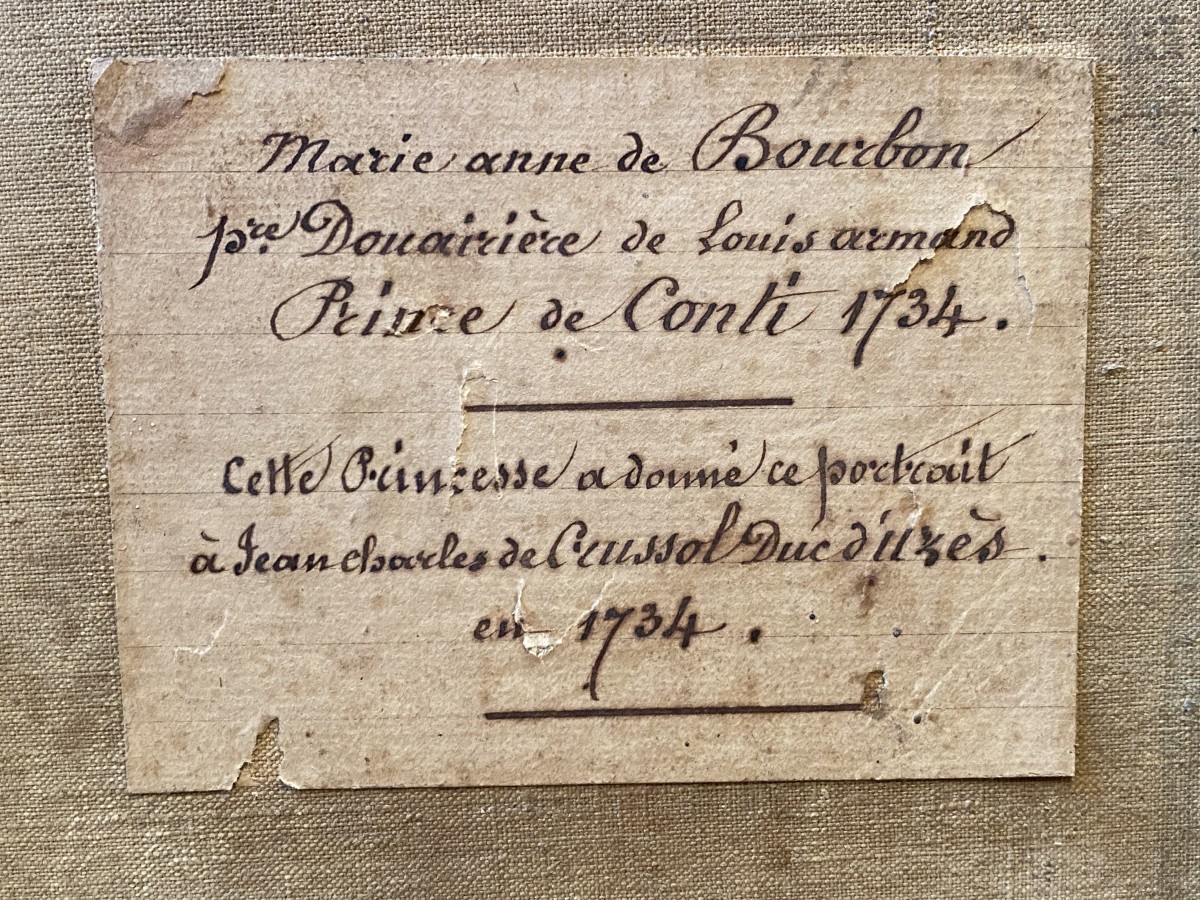 Marie anne de Bourbon
pre. Douairière de Louis armand
Prince de Conti 1734.
Cette Princesse a donné ce portrait
à Jean charles de Crussol Duc d'uzès.
en 1734.